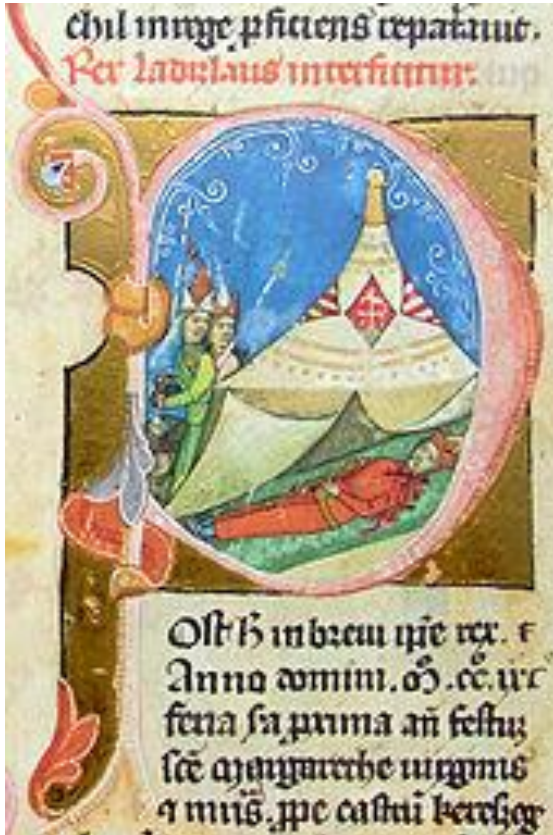 chil in rege pficiens reparauit.
Rex ladizlaus interficitur.
Post h in breui ipe rex.
Anno domini. m. cc. xc
feria sa pxima an festu
sce margarethe uirginis
ppe castru